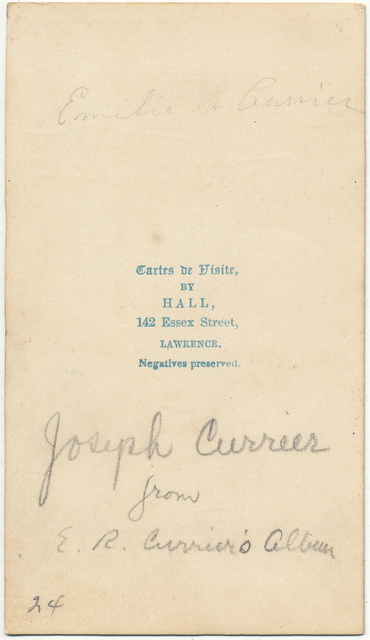 Emilie R Currier
Cartes de Visite,
BY
HALL,
142 Essex Street,
LAWRENCE.
Negatives preserved.
Joseph Currier
from
E. R. Currier's Album
24